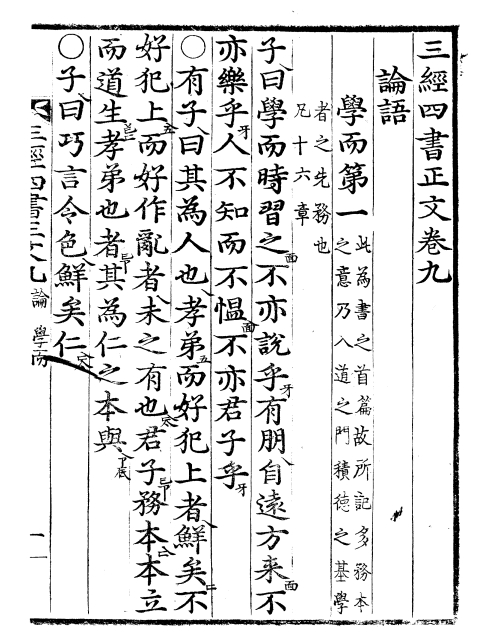 三經四書正文卷九
論語
學而第一
此為書之首篇故所記多務本
之意乃入道之門積德之基學
者之先務也
凡十六章
子曰學而時習之不亦說乎有朋自遠方來不
亦樂乎人不知而不慍不亦君子乎
〇有子曰其為人也孝弟而好犯上者鮮矣不
好犯上而好作亂者未之有也君子務本本立
而道生孝弟也者其為仁之本與
〇子曰巧言令色鮮矣仁
三經四書正文九 論 學而